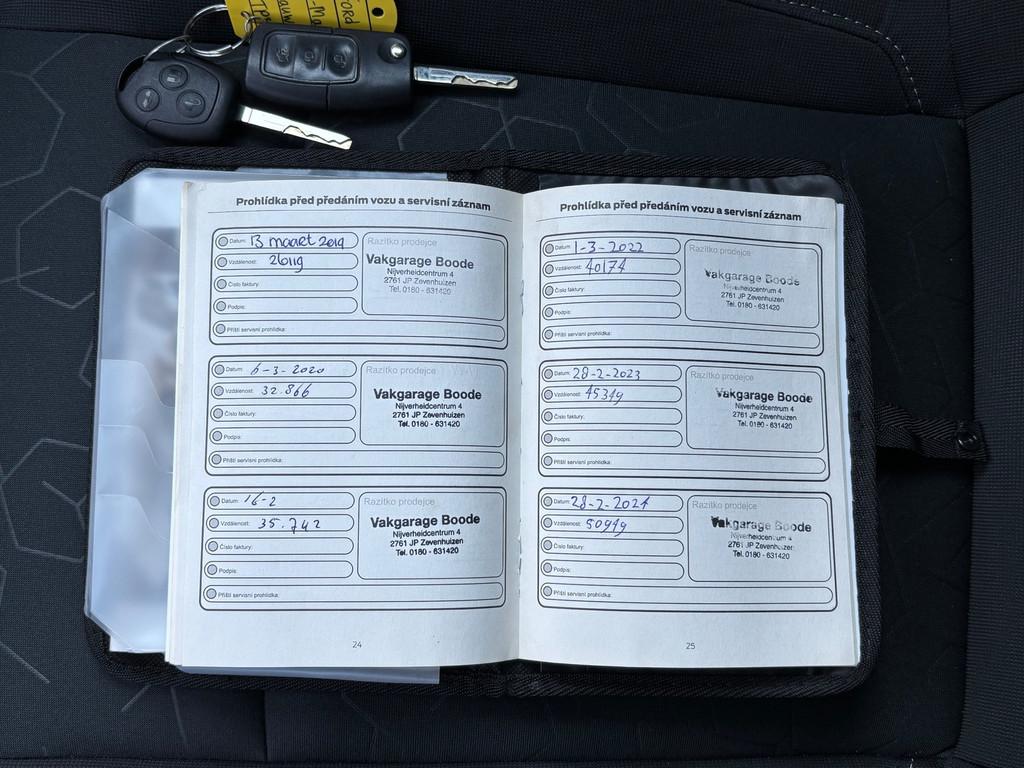 FORD
Prohlídka před předáním vozu a servisní záznam
Datum: 13 maart 2019
Vzdálenost: 26119
Číslo faktury:
Podpis:
Příští servisní prohlídka:
Razítko prodejce
Vakgarage Boode
Nijverheidcentrum 4
2761 JP Zevenhuizen
Tel. 0180 - 631420
Datum: 6-3-2020
Vzdálenost: 32.866
Číslo faktury:
Podpis:
Příští servisní prohlídka:
Razítko prodejce
Vakgarage Boode
Nijverheidcentrum 4
2761 JP Zevenhuizen
Tel. 0180 - 631420
Datum: 16-2
Vzdálenost: 35.742
Číslo faktury:
Podpis:
Příští servisní prohlídka:
Razítko prodejce
Vakgarage Boode
Nijverheidcentrum 4
2761 JP Zevenhuizen
Tel. 0180 - 631420
24
Prohlídka před předáním vozu a servisní záznam
Datum: 1-3-2022
Vzdálenost: 40174
Číslo faktury:
Podpis:
Příští servisní prohlídka:
Razítko prodejce
Vakgarage Boode
Nijverheidcentrum 4
2761 JP Zevenhuizen
Tel. 0180 - 631420
Datum: 28-2-2023
Vzdálenost: 45349
Číslo faktury:
Podpis:
Příští servisní prohlídka:
Razítko prodejce
Vakgarage Boode
Nijverheidcentrum 4
2761 JP Zevenhuizen
Tel. 0180 - 631420
Datum: 28-2-2024
Vzdálenost: 50949
Číslo faktury:
Podpis:
Příští servisní prohlídka:
Razítko prodejce
Vakgarage Boode
Nijverheidcentrum 4
2761 JP Zevenhuizen
Tel. 0180 - 631420
25